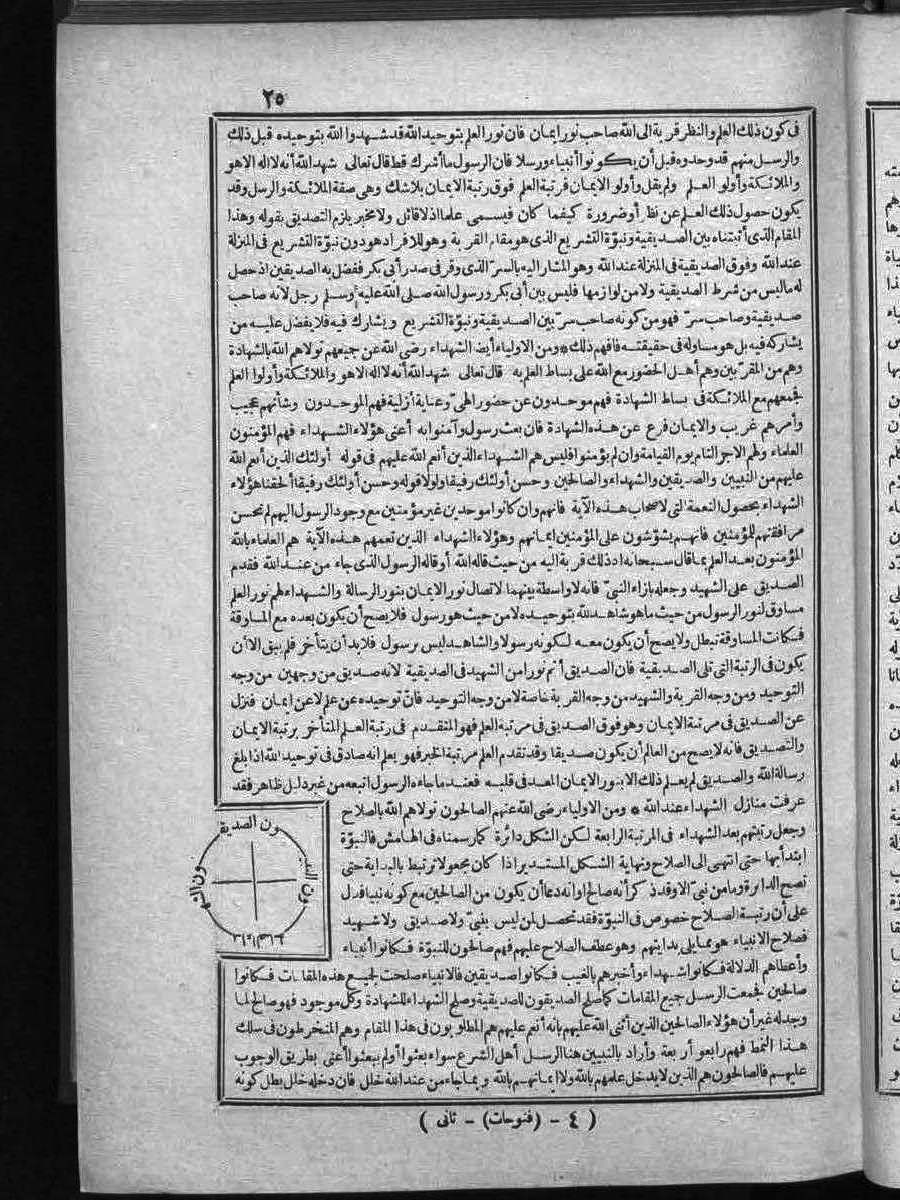 ٢٥
فى كون ذلك العلم والنظر قربة الى الله صاحب نور ايمان فان نور العلم بتوحيد الله قد شهدوا الله بتوحيده قبل ذلك
والرسل منهم قد وحدوه قبل أن يكونوا أنبياء ورسلا فان الرسول ما أشرك قط قال تعالى شهد الله أنه لا اله الا هو
والملائكة وأولو العلم ولم يقل وأولو الايمان فرتبة العلم فوق رتبة الايمان بلا شك وهى صفة الملائكة والرسل وقد
يكون حصول ذلك العلم عن نظر أو ضرورة كيفما كان فيسمى علما اذ لا قائل ولا مخبر يلزم التصديق بقوله وهذا
المقام الذى أثبتناه بين الصديقية ونبوّة التشريع الذى هو مقام القربة وهو للافراد هو دون نبوّة التشريع فى المنزلة
عند الله وفوق الصديقية فى المنزلة عند الله وهو المشار اليه بالسرّ الذى وقر فى صدر أبى بكر ففضل به الصديقين اذ حصل
له ما ليس من شرط الصديقية ولا من لوازمها فليس بين أبى بكر ورسول الله صلى الله عليه وسلم رجل لانه صاحب
صديقية وصاحب سرّ فهو من كونه صاحب سرّ بين الصديقية ونبوّة التشريع ويشارك فيه فلا يفضل عليه من
يشاركه فيه بل هو مساو له فى حقيقته فافهم ذلك * ومن الاولياء أيضا الشهداء رضى الله عن جميعهم تولاهم الله بالشهادة
وهم من المقرّبين وهم أهل الحضور مع الله على بساط العلم به قال تعالى شهد الله أنه لا اله الا هو والملائكة وأولوا العلم
فجمعهم مع الملائكة فى بساط الشهادة فهم موحدون عن حضور الهىّ وعناية أزلية فهم الموحدون وشأنهم عجيب
وأمرهم غريب والايمان فرع عن هذه الشهادة فان بعث رسول وآمنوا به أعنى هؤلاء الشهداء فهم المؤمنون
العلماء ولهم الاجر التام يوم القيامة وان لم يؤمنوا فليس هم الشهداء الذين أنعم الله عليهم فى قوله أولئك الذين أنعم الله
عليهم من النبيين والصديقين والشهداء والصالحين وحسن أولئك رفيقا ولولا قوله وحسن أولئك رفيقا ألحقنا هؤلاء
الشهداء بحصول النعمة التى لاصحاب هذه الآية فانهم وان كانوا موحدين غير مؤمنين مع وجود الرسول اليهم لم تحسن
مرافقتهم للمؤمنين فانهم يشوّشون على المؤمنين ايمانهم وهؤلاء الشهداء الذين تعمهم هذه الآية هم العلماء بالله
المؤمنون بعد العلم بما قال سبحانه ان ذلك قربة اليه من حيث قاله الله أو قاله الرسول الذى جاء من عند الله فقدم
الصديق على الشهيد وجعله بازاء النبىّ فانه لا واسطة بينهما لاتصال نور الايمان بنور الرسالة والشهداء لهم نور العلم
مساوق لنور الرسول من حيث ما هو شاهد لله بتوحيده لا من حيث هو رسول فلا يصح أن يكون بعده مع المساوقة
فكانت المساوقة تبطل ولا يصح أن يكون معه لكونه رسولا والشاهد ليس برسول فلا بد أن يتأخر فلم يبق الا أن
يكون فى الرتبة التى تلى الصديقية فان الصديق أتم نورا من الشهيد فى الصديقية لانه صديق من وجهين من وجه
التوحيد ومن وجه القربة والشهيد من وجه القربة خاصة لا من وجه التوحيد فانّ توحيده عن علم لا عن ايمان فنزل
عن الصديق فى مرتبة الايمان وهو فوق الصديق فى مرتبة العلم فهو المتقدم فى رتبة العلم المتأخر برتبة الايمان
والتصديق فانه لا يصح من العالم أن يكون صديقا وقد تقدم العلم مرتبة الخبر فهو يعلم انه صادق فى توحيد الله اذا بلغ
رسالة الله والصديق لم يعلم ذلك الا بنور الايمان المعد فى قلبه فعند ما جاءه الرسول اتبعه من غير دليل ظاهر فقد
عرفت منازل الشهداء عند الله * ومن الاولياء رضى الله عنهم الصالحون تولاهم الله بالصلاح
وجعل رتبتهم بعد الشهداء فى المرتبة الرابعة لكن الشكل دائرة كما رسمناه فى الهامش فالنبوّة
ابتدأ بها حتى انتهى الى الصلاح ونهاية الشكل المستدير اذا كان مجعولا ترتبط بالبداية حتى
تصح الدائرة وما من نبىّ الا وقد ذكر أنه صالح أو أنه دعا أن يكون من الصالحين مع كونه نبيا فدل
على أن رتبة الصلاح خصوص فى النبوّة فقد تحصل لمن ليس بنبىّ ولا صديق ولا شهيد
فصلاح الانبياء هو مما يلى بدايتهم وهو عطف الصلاح عليهم فهم صالحون للنبوّة فكانوا أنبياء
وأعطاهم الدلالة فكانوا شهداء وأخبرهم بالغيب فكانوا صديقين فالانبياء صلحت لجميع هذه المقامات فكانوا
صالحين فجمعت الرسل جميع المقامات كما صلح الصديقون للصديقية وصلح الشهداء للشهادة وكل موجود فهو صالح لما
وجد له غير أن هؤلاء الصالحين الذين أثنى الله عليهم بانه أنعم عليهم هم المطلوبون فى هذا المقام وهم المنخرطون فى سلك
هذا النمط فهم رابعو أربعة وأراد بالنبيين هنا الرسل أهل الشرع سواء بعثوا أو لم يبعثوا أعنى بطريق الوجوب
عليهم فالصالحون هم الذين لا يدخل علمهم بالله ولا ايمانهم بالله وبما جاء من عند الله خلل فان دخله خلل بطل كونه
ون الصديق
( ٤ - (فتوحات) - ثانى )